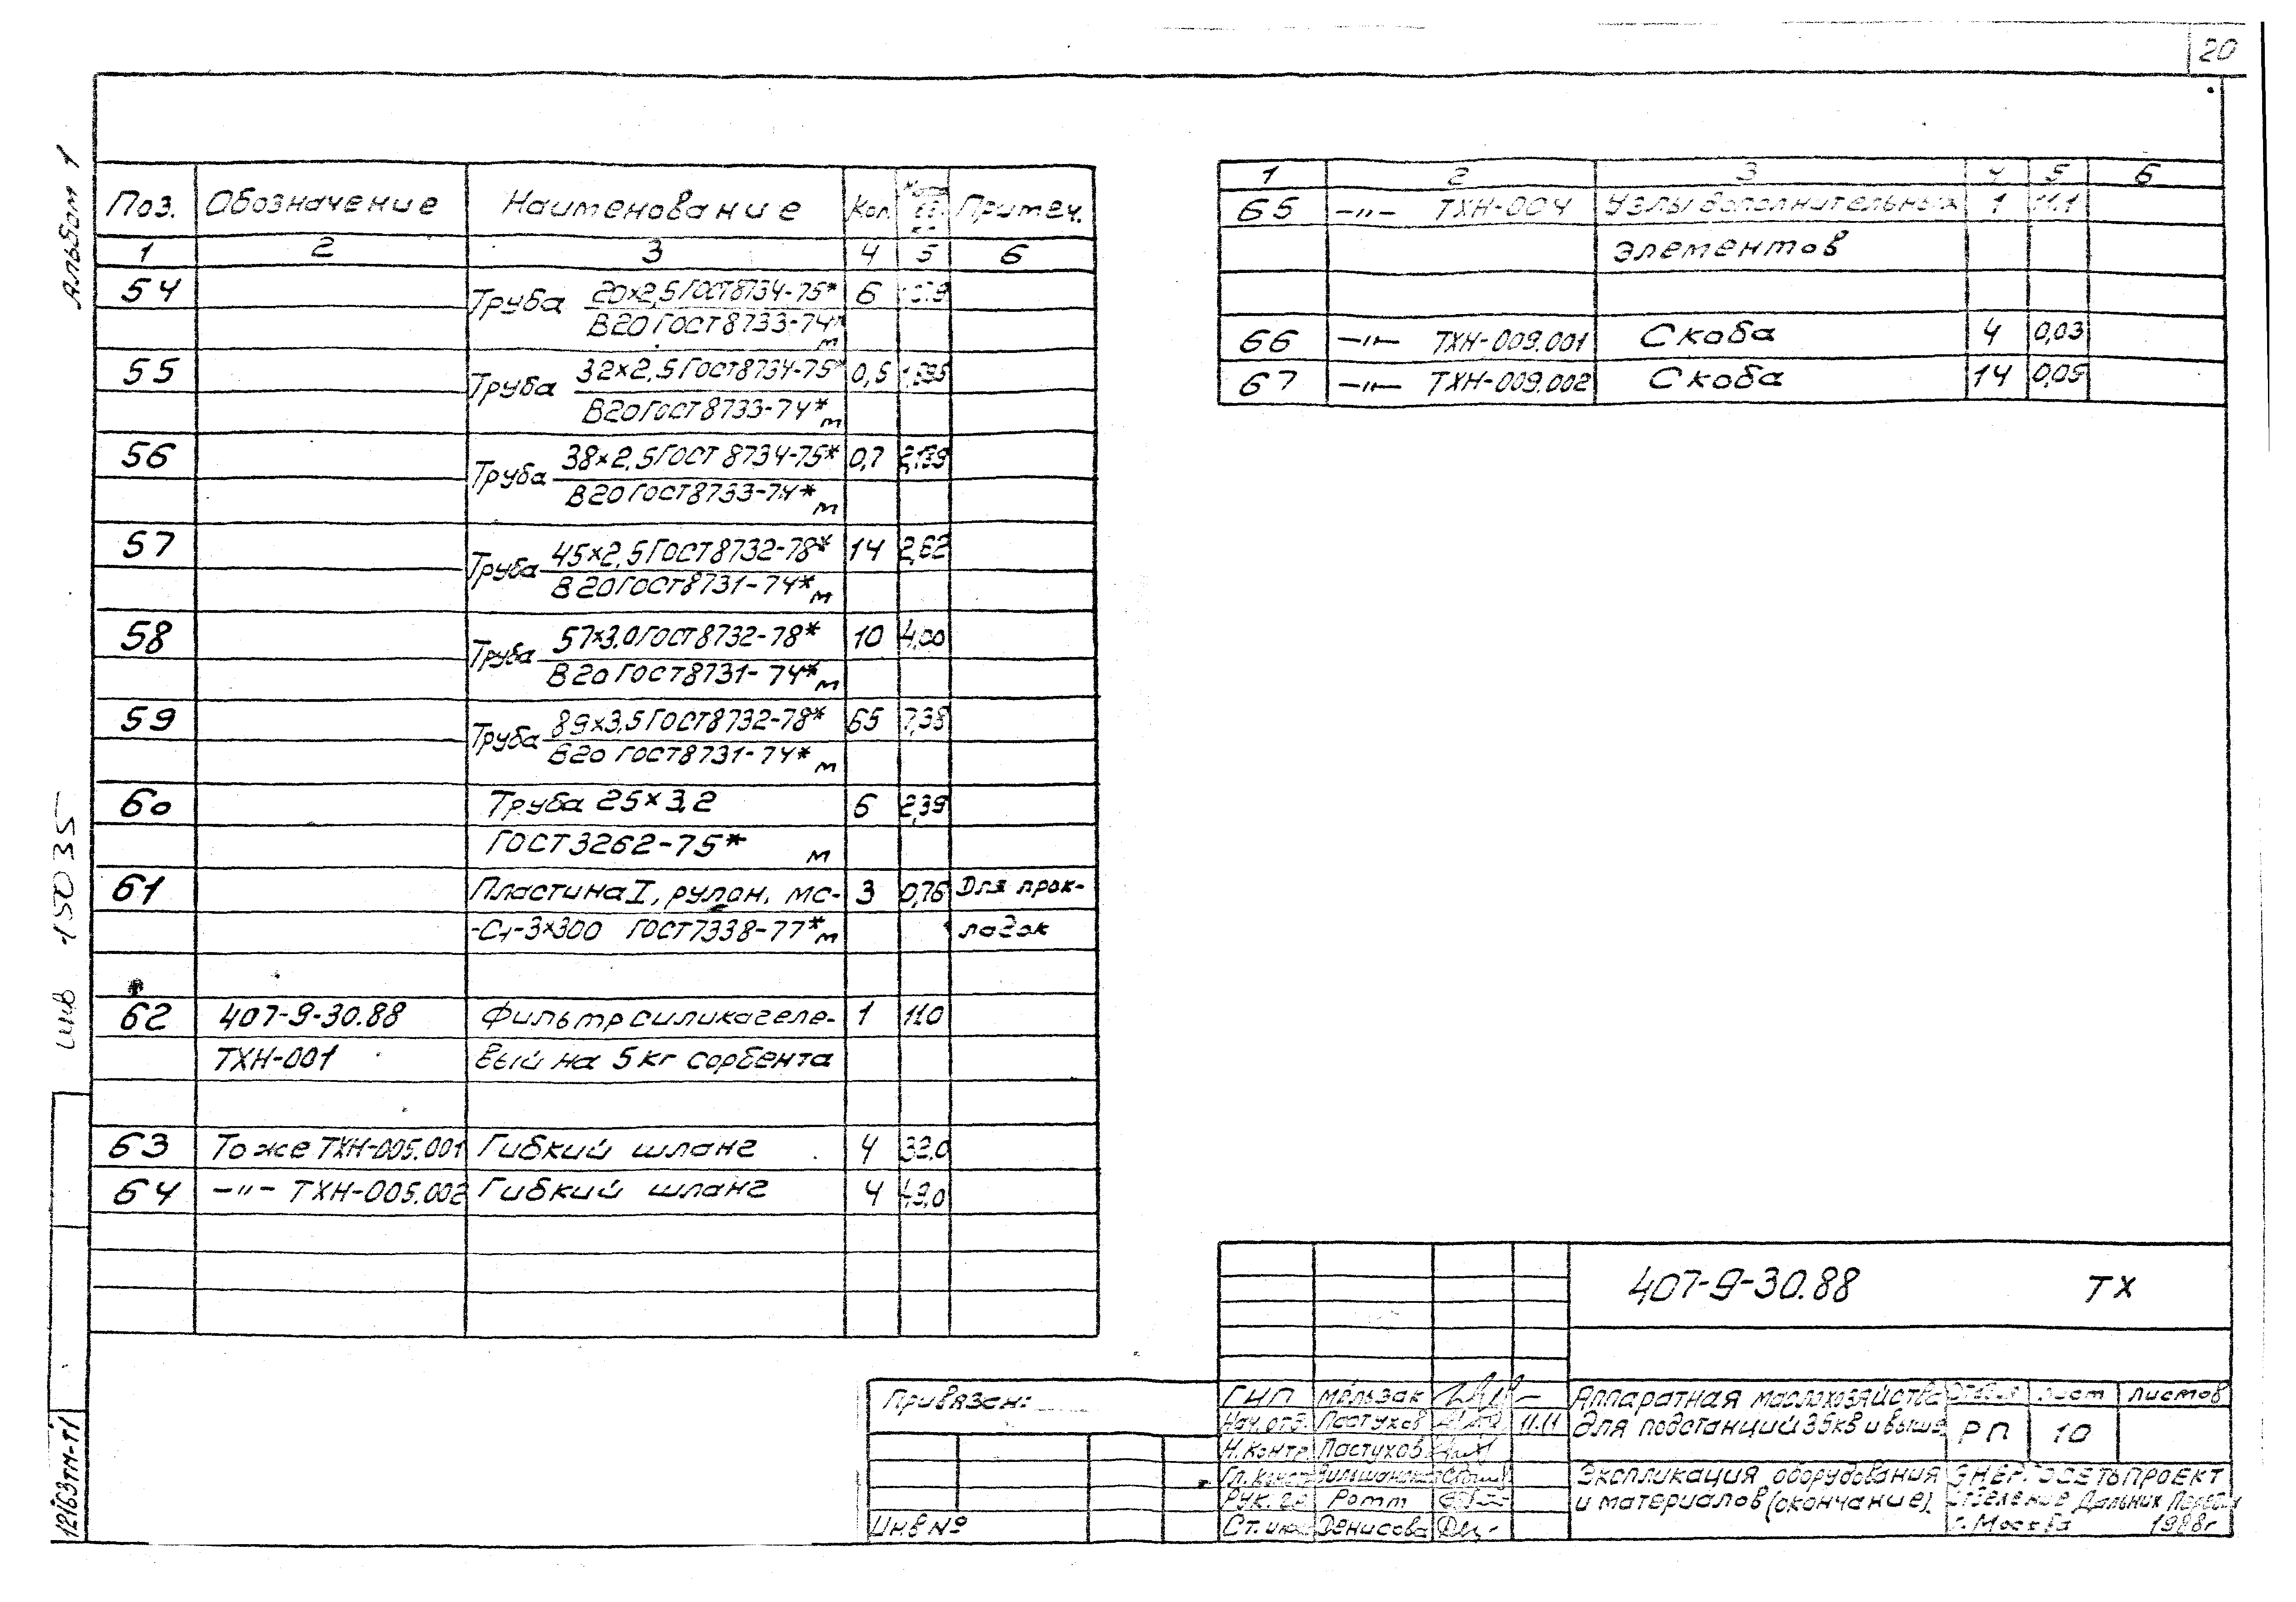 20
Альбом 1
Поз. Обозначение Наименование Кол. Примеч.
1 2 3 4 5 6
54 Труба 20×2,5 ГОСТ 8734-75* 6
В20 ГОСТ 8733-74*
м
55 Труба 32×2,5 ГОСТ 8734-75* 0,5
В20 ГОСТ 8733-74*
м
56 Труба 38×2,5 ГОСТ 8734-75* 0,7 2,189
В20 ГОСТ 8733-74*
м
57 Труба 45×2,5 ГОСТ 8732-78* 14 2,62
В20 ГОСТ 8731-74*
м
58 Труба 57×3,0 ГОСТ 8732-78* 10 4,00
В20 ГОСТ 8731-74*
м
59 Труба 89×3,5 ГОСТ 8732-78* 65 7,38
В20 ГОСТ 8731-74*
м
60 Труба 25×3,2 6 2,39
ГОСТ 3262-75* м
61 Пластина I, рулон, МС- 3 0,76 Для прок-
-С1-3×300 ГОСТ 7338-77* м ладок
62 407-9-30.88 Фильтр силикагеле- 1 11,0
ТХН-001 вый на 5 кг сорбента
63 То же ТХН-005.001 Гибкий шланг 4 32,0
64 -"- ТХН-005.002 Гибкий шланг 4
1 2 3 4 5 6
65 -"- ТХН-004 Узлы дополнительных 1 11.1
элементов
66 -"- ТХН-009.001 Скоба 4 0,03
67 -"- ТХН-009.002 Скоба 14 0,05
инв 15035
12163ТМ-Т1
Привязан:
Инв №
407-9-30.88 ТХ
ГИП Мельзак
Нач. отд. Пастухов 11.11
Н. контр. Пастухов
Гл. конст.
Рук. гр. Ротт
Ст. инж. Денисова
Аппаратная маслохозяйства
для подстанций 35кВ и выше
Стадия Лист Листов
РП 10
Экспликация оборудования
и материалов (окончание)
ЭНЕРГОСЕТЬПРОЕКТ
Отделение Дальних Передач
г. Москва 1988г